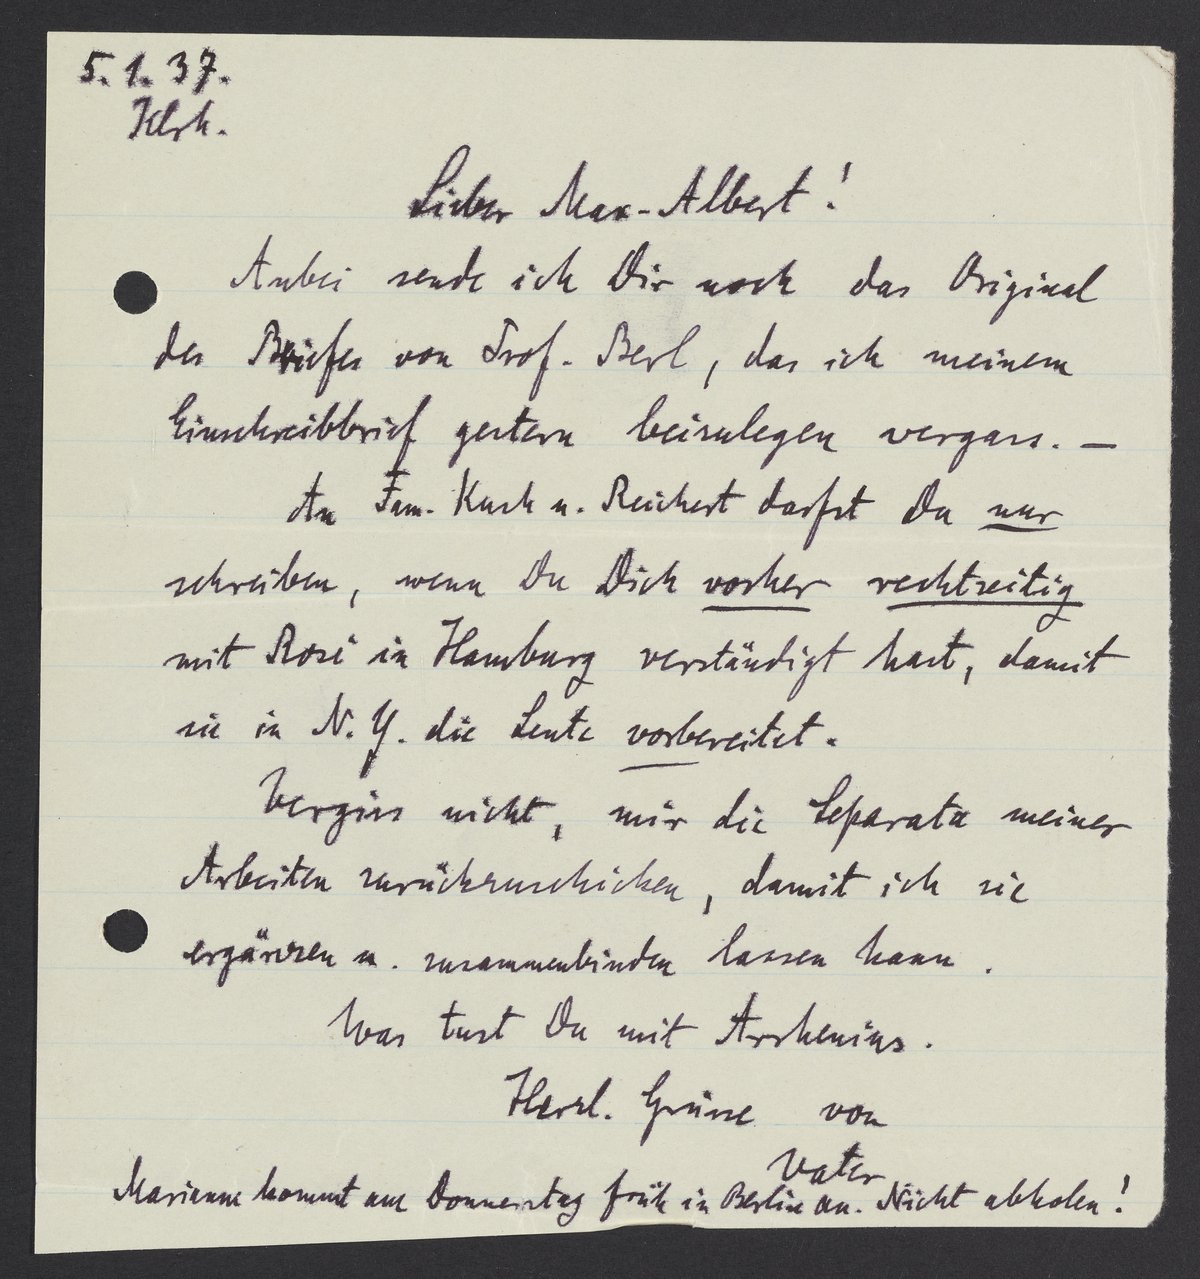 5.1.37.
Klrh.
Lieber Max-Albert!
Anbei sende ich Dir noch das Original
des Briefes von Prof. Berl, das ich meinem
Einschreibbrief gestern beizulegen vergass. —
An Fam. Kusch u. Reichert darfst Du nur
schreiben, wenn Du Dich vorher rechtzeitig
mit Rosi in Hamburg verständigt hast, damit
sie in N.Y. die Leute vorbereitet.
Vergiss nicht, mir die Separata meiner
Arbeiten zurückzuschicken, damit ich sie
ergänzen u. zusammenbinden lassen kann.
Was tust Du mit Arrhenius.
Herzl. Grüsse von
Vater
Marianne kommt am Donnerstag früh in Berlin an. Nicht abholen!